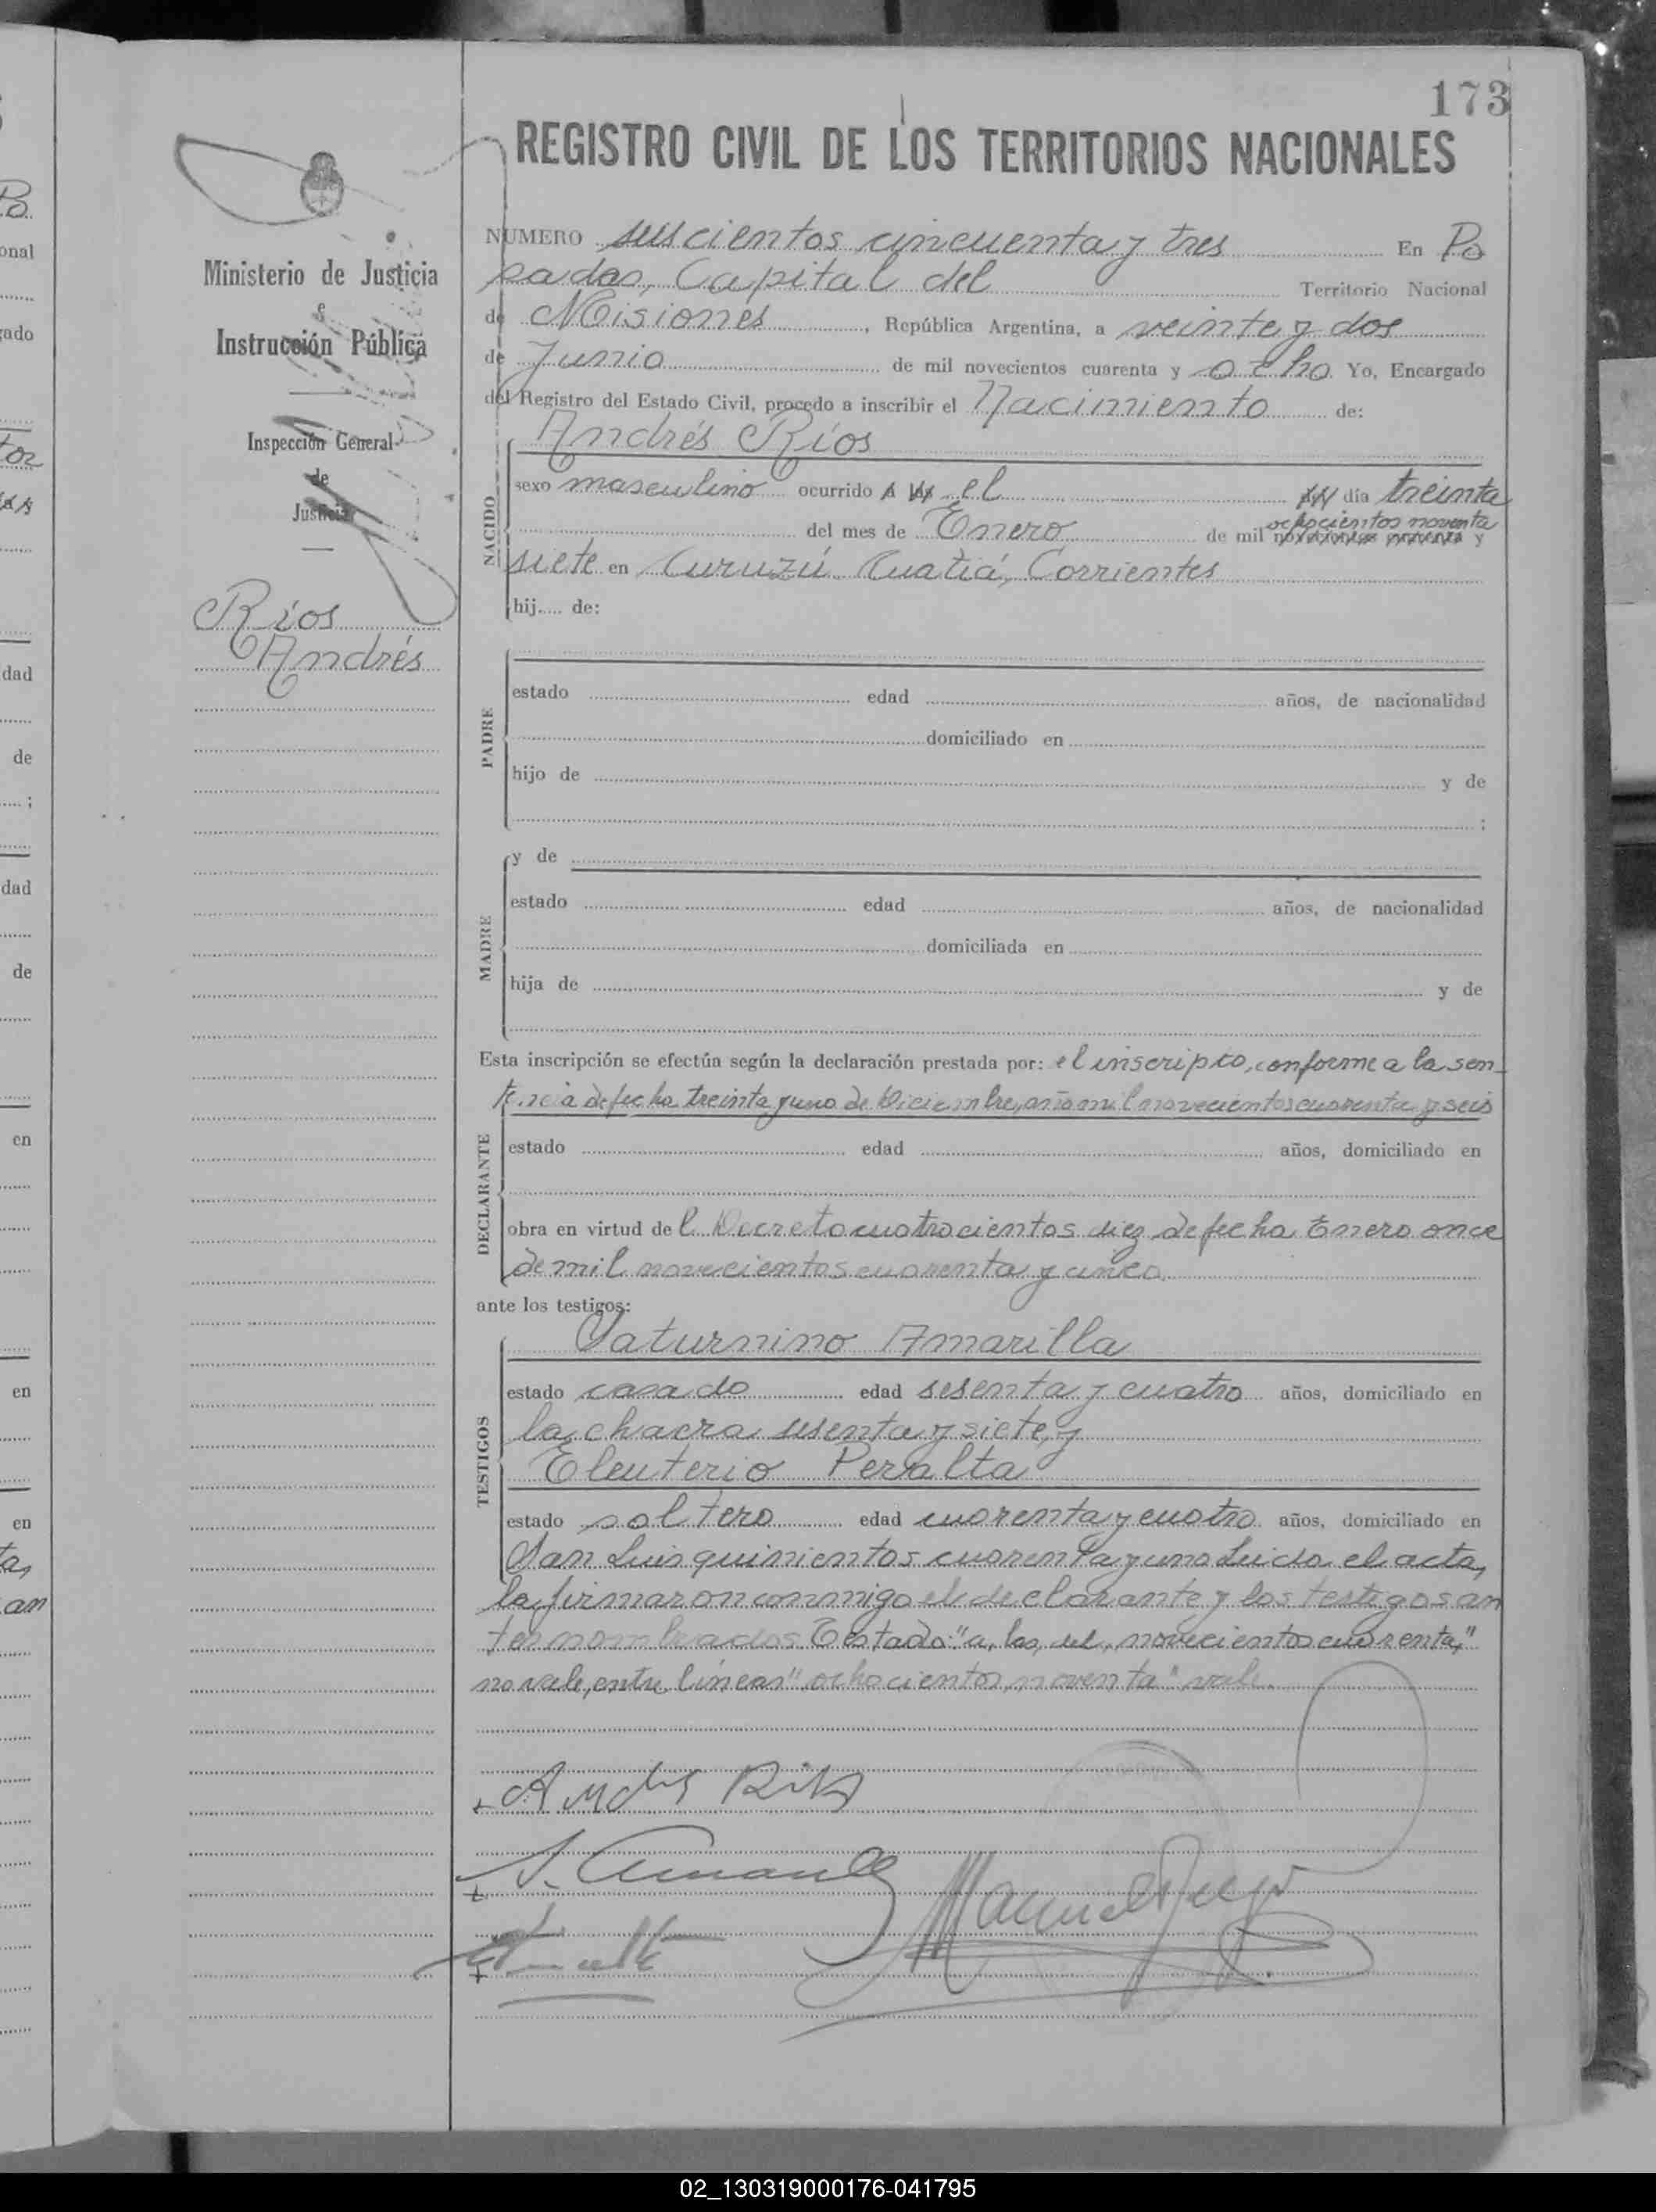 173
REGISTRO CIVIL DE LOS TERRITORIOS NACIONALES
Ministerio de Justicia
é
Instrucción Pública
Inspección General
de
Justicia
Ríos
Andrés
NUMERO seiscientos cincuenta y tres En Po
sadas, Capital del Territorio Nacional
de Misiones, República Argentina, a veinte y dos
de Junio de mil novecientos cuarenta y ocho Yo, Encargado
del Registro del Estado Civil, procedo a inscribir el Nacimiento de:
Andrés Ríos
NACIDO
sexo masculino ocurrido a las el del día treinta
ochocientos noventa
del mes de Enero de mil novecientos cuarenta y
siete en Curuzú Cuatiá, Corrientes
hij.... de:
PADRE
estado edad años, de nacionalidad
domiciliado en
hijo de y de
;
MADRE
y de
estado edad años, de nacionalidad
domiciliada en
hija de y de
Esta inscripción se efectúa según la declaración prestada por: el inscripto, conforme a la sen
tencia de fecha treinta y uno de Diciembre, año mil novecientos cuarenta y seis
DECLARANTE
estado edad años, domiciliado en
obra en virtud del Decreto cuatrocientos diez de fecha Enero once
de mil novecientos cuarenta y cinco.
ante los testigos:
TESTIGOS
Saturnino Amarilla
estado casado edad sesenta y cuatro años, domiciliado en
la chacra sesenta y siete, y
Eleuterio Peralta
estado soltero edad cuarenta y cuatro años, domiciliado en
San Luis quinientos cuarenta y uno Leida el acta,
la firmaron conmigo el declarante y los testigos an
tes nombrados Testado: "a, las, del, novecientos cuarenta,"
no vale, entre líneas "ochocientos noventa" vale.
Andrés Ríos
S. Amarilla
02_130319000176-041795